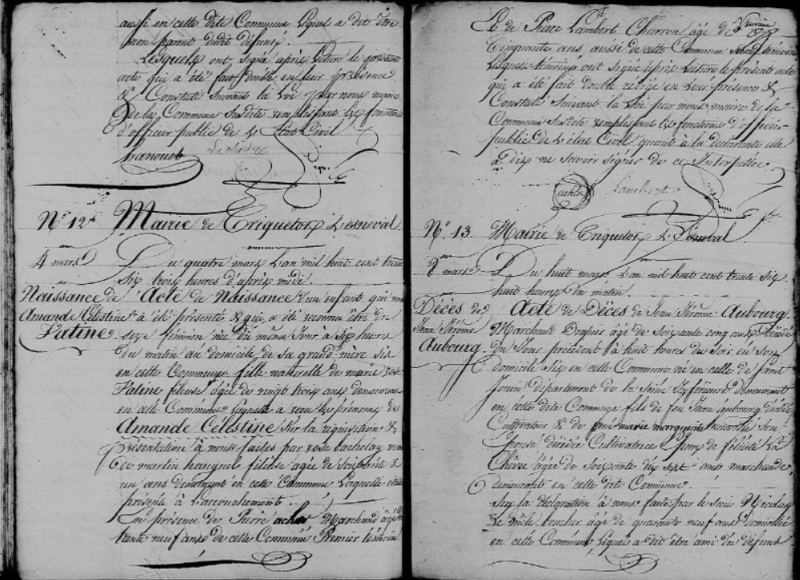 aussi en cette dite Commune lequel a dit être
non parent dudit défunt.
Lesquels ont signé après lecture le présent
acte qui a été fait double en leur présence
& Constaté suivant la loi par nous maire
de la Commune Susdite remplissant les fonctions
d'officier public de l'Etat Civil
hanouet
N.° 12 Mairie de Criquetot Lesneval
4 mars Du quatre mars L'an mil huit cent trente
Six trois heures d'après midi
Naissance de Acte de Naissance d'un enfant, qui nous
Amande Celestine a été présenté & qui a été reconnu être du
Fatine sexe féminin née du même Jour à six heures
du matin au domicile de sa grand mère Sis
en cette Commune fille naturelle de marie
Fatine fileuse âgée de vingt trois ans demeurant
en cette Commune laquelle a reçu les prénoms de
Amande Celestine Sur la réquisition &
présentation à nous faites par rose bachelay
de martin hauguel fileuse âgée de Soixante &
un ans demeurant en cette Commune Laquelle était
présente à L'accouchement.
En présence de Pierre achet Marchand âgé de
trente neuf ans de cette Commune Premier témoin
Et de Pierre Lambert Charron âgé de
Cinquante ans, aussi de cette Commune Second témoin
Lesquels témoins ont signé après Lecture le présent acte
qui a été fait double rédigé en leur présence &
Constaté Suivant la Loi par nous maire de la
Commune Susdite remplissant les fonctions d'officier
public de L'état Civil quant à la déclarante elle
a dit ne Savoir Signer de ce Interpellée
achet Lambert
N.° 13 Mairie de Criquetot L'Esneval
8 mars Du huit mars L'an mil huit cent trente Six
huit heures du matin
Décès de Acte de Décès de Jean Jérôme Aubourg
Jean Jérôme Marchand Drapier âgé de Soixante cinq ans décédé
Aubourg du Jour précédent à huit heures du Soir en Son
domicile Sis en cette Commune né en celle de Saint
Jouin département de la Seine Inférieure demeurant
en cette dite Commune fils de feu Jean aubourg décédé
Cultivateur & de feue marie marguerite Son
épouse décédée Cultivatrice Epoux de félicité La
Chèvre âgée de Soixante dix Sept ans marchande
demeurant en cette dite Commune
Sur la déclaration à nous faite par le Sieur
Le mêle boucher âgé de quarante neuf ans domicilié
en cette Commune Lequel a dit être ami du défunt